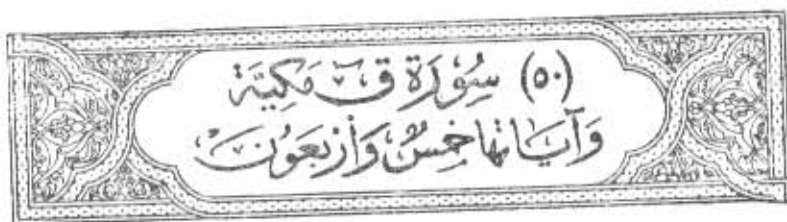 (٥٠) سُورَة ق مَكِيَّة
وَآيَاتهَا خمسٌ وَأربَعُونَ